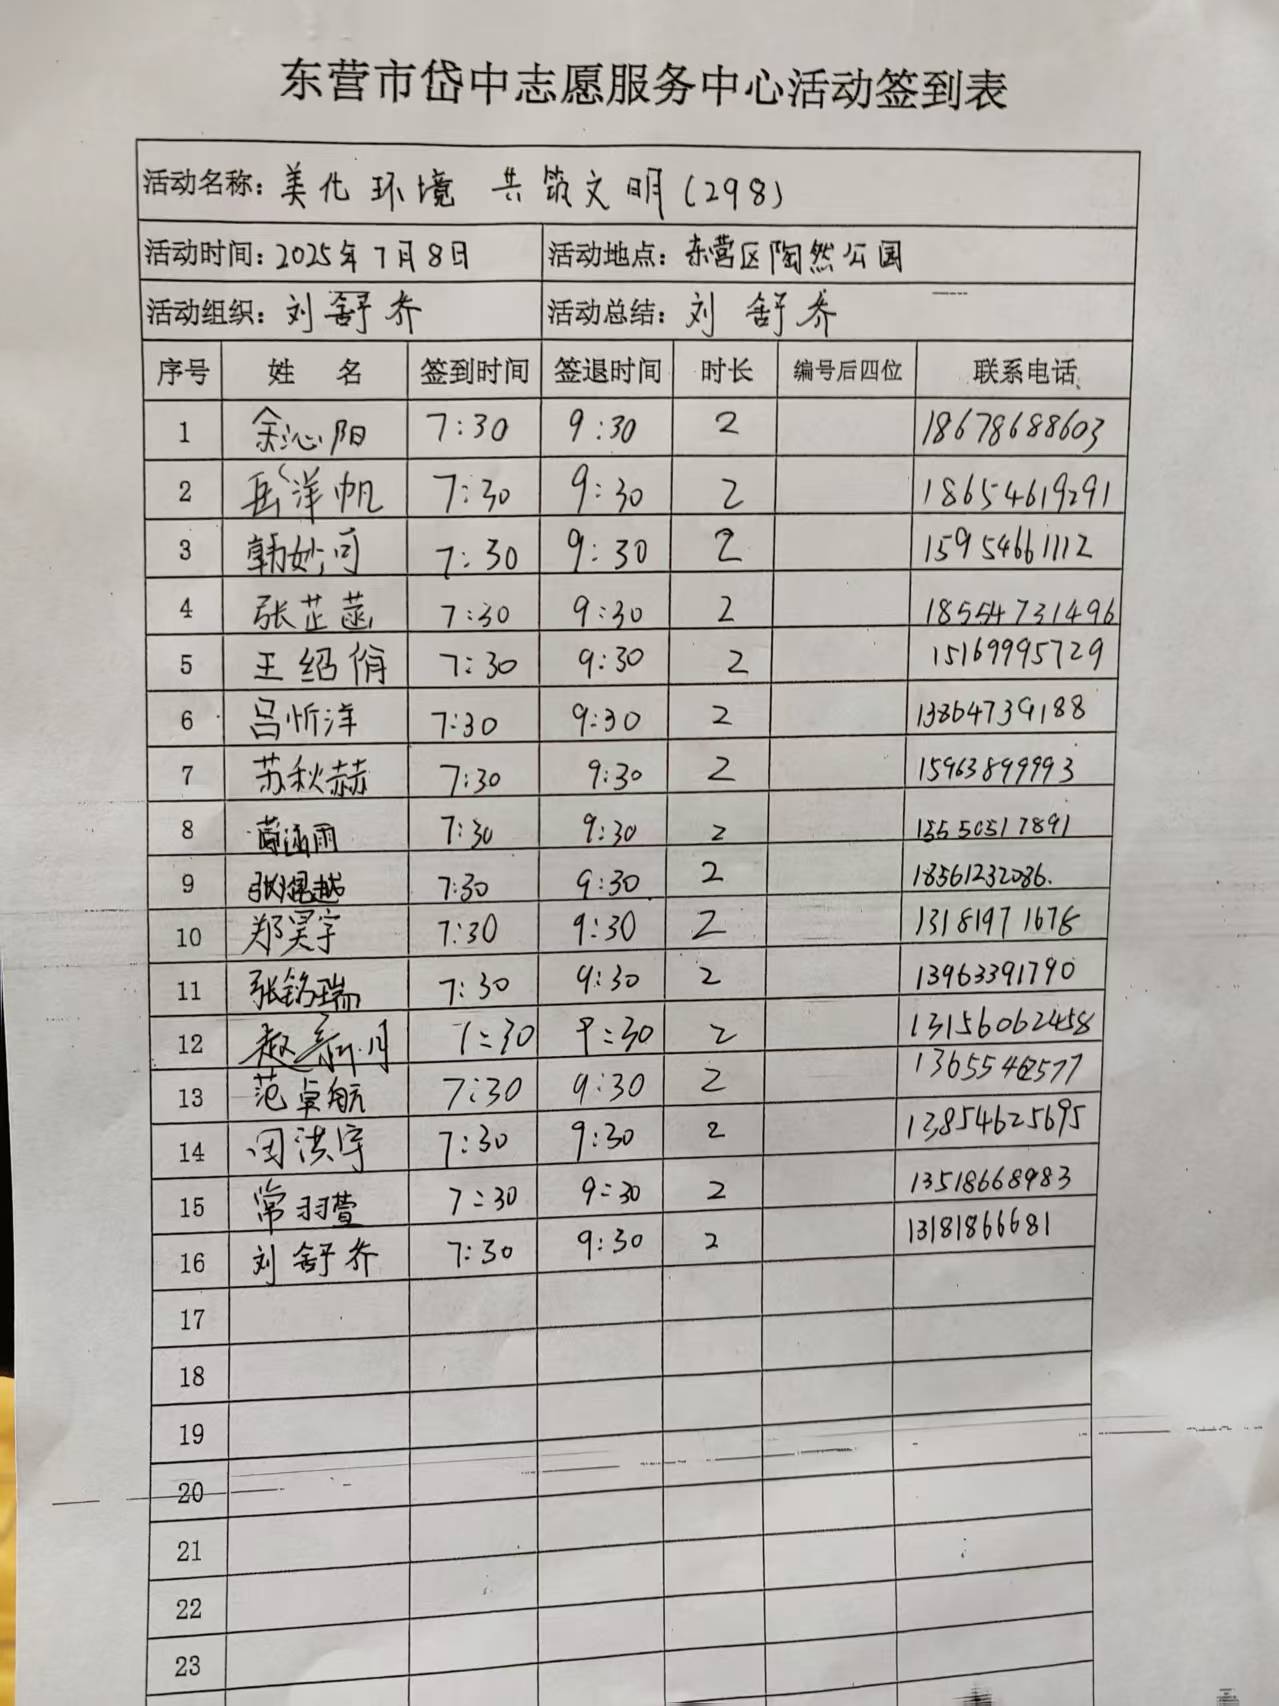 东营市岱中志愿服务中心活动签到表
活动名称：美化环境 共筑文明(298)
活动时间：2025年7月8日 活动地点：东营区陶然公园
活动组织：刘舒乔 活动总结：刘舒乔
序号 姓 名 签到时间 签退时间 时长 编号后四位 联系电话
1 余沁阳 7:30 9:30 2 18678688603
2 岳洋帆 7:30 9:30 2 18654619291
3 韩妙可 7:30 9:30 2 15954661112
4 张芷菡 7:30 9:30 2 18554731496
5 王绍俏 7:30 9:30 2 15169995729
6 吕忻洋 7:30 9:30 2 13864739188
7 苏秋赫 7:30 9:30 2 15963899993
8 涵雨 7:30 9:30 2 15550517891
9 张 越 7:30 9:30 2 18561232086.
10 郑昊宇 7:30 9:30 2 13181971678
11 张铭瑞 7:30 9:30 2 13963391790
12 赵新月 7:30 9:30 2 13156062458
13 范卓航 7:30 9:30 2
14 田洪宇 7:30 9:30 2 13854625695
15 常羽萱 7:30 9:30 2 13518668983
16 刘舒乔 7:30 9:30 2 13181866681
17
18
19
20
21
22
23